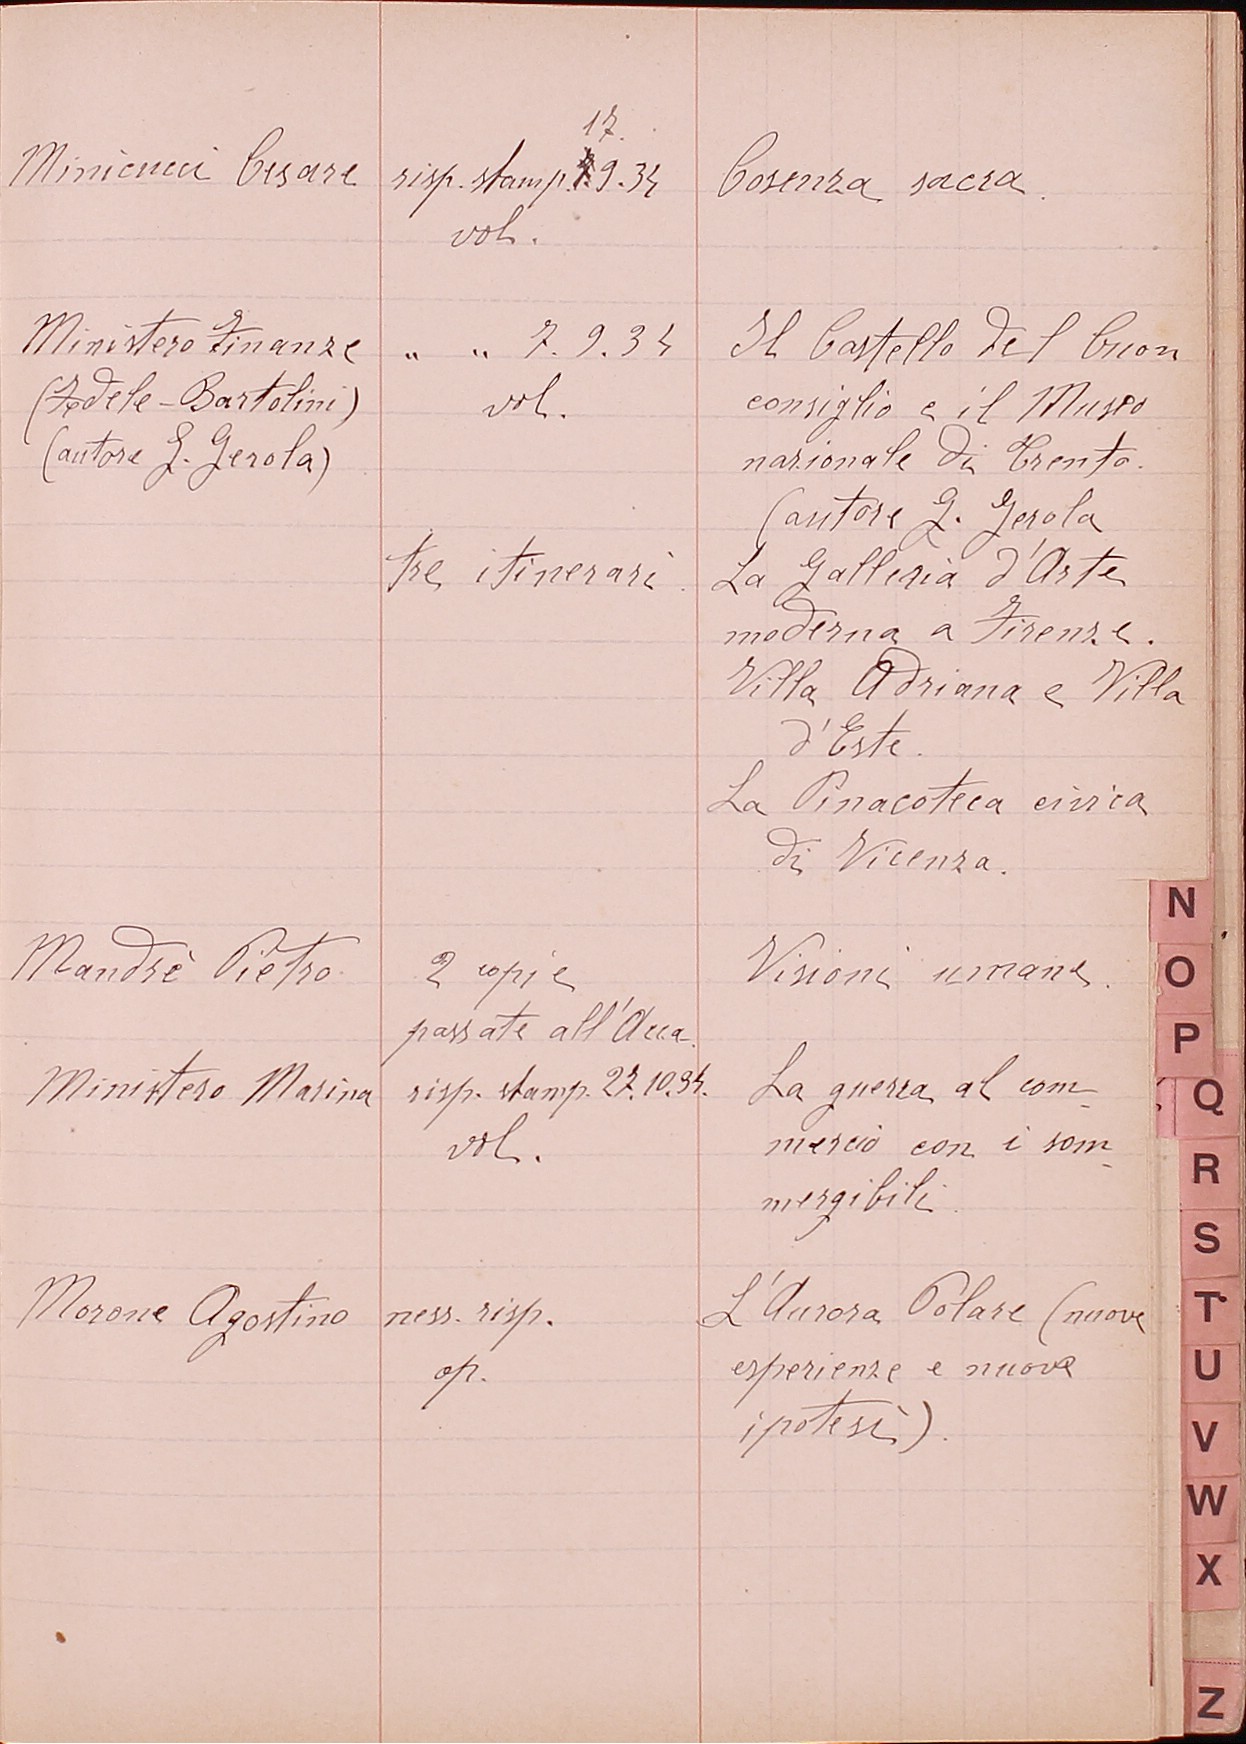 17.
Minicucci Cesare risp. stamp. 9.34 Cosenza sacra.
vol.
Ministero Finanze " " 7.9.34 Il Castello del buon
(Fedele-Bartolini) vol. consiglio e il Museo
(autore G. Gerola) nazionale di Trento.
(autore G. Gerola
tre itinerari. La Galleria d'Arte
moderna a Firenze.
Villa Adriana e Villa
d'Este.
La Pinacoteca civica
di Vicenza.
Mandrè Pietro 2 copie Visioni umane.
passate all'Acca.
Ministero Marina risp. stamp. 27.10.34. La guerra al com-
vol. mercio con i som-
mergibili.
Morone Agostino ness. risp. L'Aurora Polare (nuove
op. esperienze e nuove
ipotesi).
N
O
P
Q
R
S
T
U
V
W
X
Z